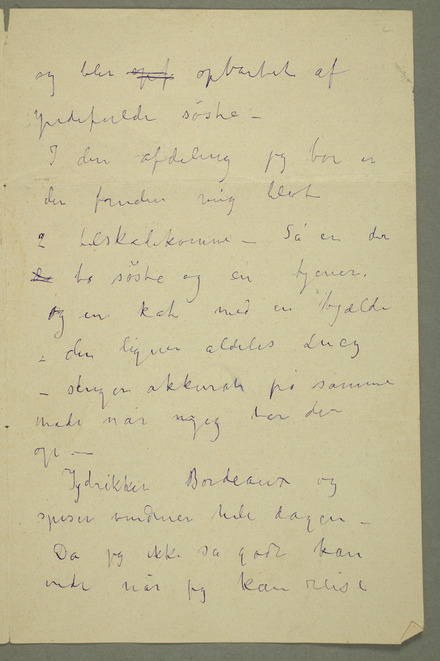 og blev opvartet af
ydefulde søstre –
I den afdeling jeg bor er
der foruden mig blot
2 tilskadekomne – Så er der
to søstre og en tjener.
og en kat med en bjælde
– den ligner aldeles Lucy
– skriger akkurat på samme
måde når tar den
op. –
Jeg drikker Bordeaux og
spiser hele dagen –
Da jeg ikke så godt kan
vide når jeg kan reise